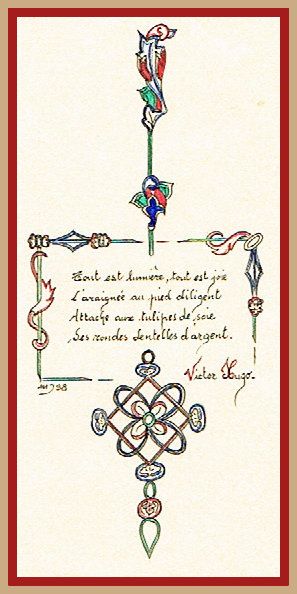 Tout est lumière, tout est joie
L'araignée au pied diligent
Attache aux tulipes de soie
Ses rondes dentelles d'argent.
Victor Hugo.